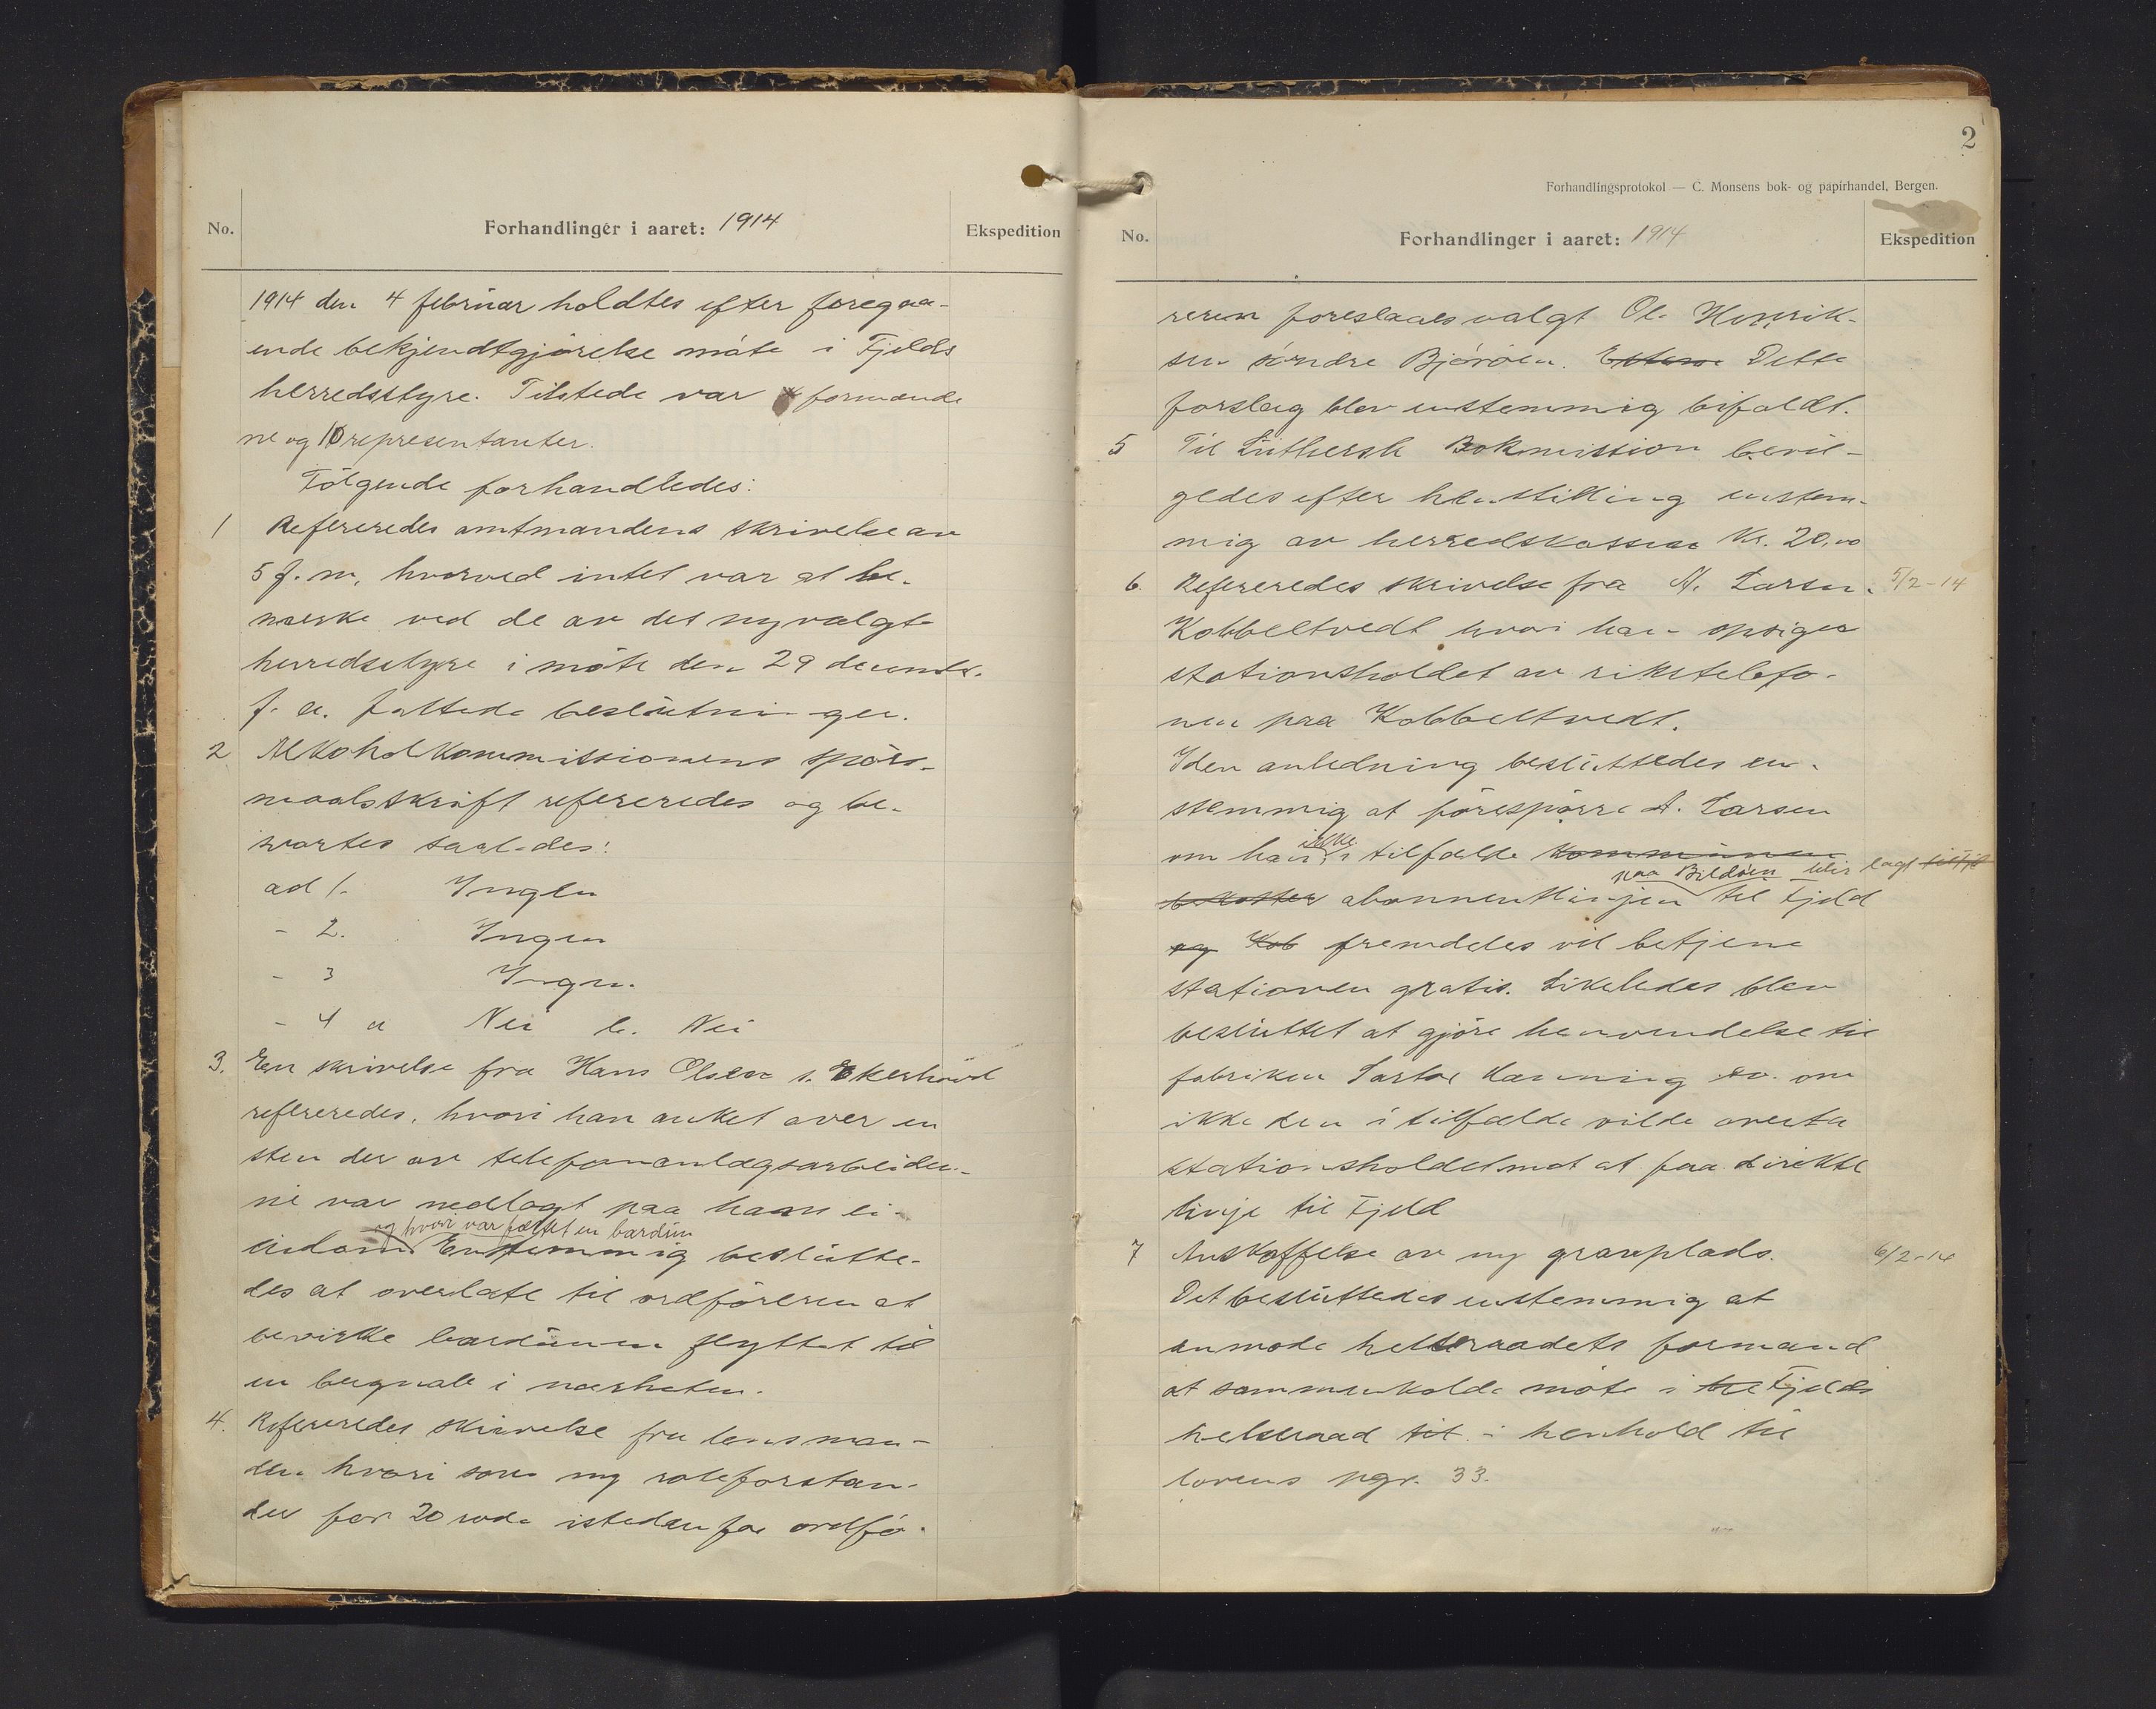 No.
Forhandlinger i aaret: 1914
Ekspedition
1914 den 4 februar holdtes efter foregaa-
ende bekjendtgjørelse møte i Fjelds
herredsstyre. Tilstede var formænde
ne og 10 representanter.
Følgende forhandledes:
1 Refereredes amtmandens skrivelse av
5 f. m. hvorved intet var at be-
merke ved de av det nyvalgte
herredsstyre i møte den 29 decembr.
f. a. fattede beslutninger.
2 Alkoholkommissionens spørs-
maalsskrift refereredes og be-
svartes saaledes:
ad 1. Ingen
- 2. Ingen
- 3 Ingen.
- 4 a Nei b. Nei
3. En skrivelse fra Hans Olsen s. Ekerhovd
refereredes, hvori han anket over en
sten der av telefonanlægsarbeider-
ne var nedlagt paa hans ei-
og hvori var fæstet en bardun
endom. Enstemmig beslutte-
des at overlate til ordføreren at
bevirke bardunen flyttet til
en bergnab i nærheten.
4. Refereredes skrivelse fra lensman-
den hvori som ny roteforstan-
der for 20 rode istedenfor ordfø-
2
Forhandlingsprotokol — C. Monsens bok- og papirhandel, Bergen.
No.
Forhandlinger i aaret: 1914
Ekspedition
reren foreslaaes valgt Ole Henrik-
sen søndre Bjørøen. Dette
forslag blev enstemmig bifaldt.
5 Til Luthersk Bokmission bevil-
gedes efter henstilling enstem-
mig av herredskassen Kr. 20,00
6. Refereredes skrivelse fra A. Larsen 5/2-14
Kobbeltvedt hvori han opsiger
stationsholdet av rikstelefo-
nen paa Kobbeltvedt.
I den anledning besluttedes en-
stemmig at forespørre A. Larsen
ikke
om han i tilfælde kommunen
paa Bildøen blir lagt
bekoster abonnentlinjen til Fjeld
og Kob fremdeles vil betjene
stationen gratis. Likeledes blev
besluttet at gjøre henvendelse til
fabriken Sartor Canning co. om
ikke den i tilfælde vilde overta
stationsholdet mot at faa direkte
linje til Fjeld
7 Anskaffelse av ny gravplads. 6/2-14
Det besluttedes enstemmig at
anmode helseraadets formand
at sammenkalde møte i he Fjelds
helseraad til i henhold til
lovens pgr. 33.